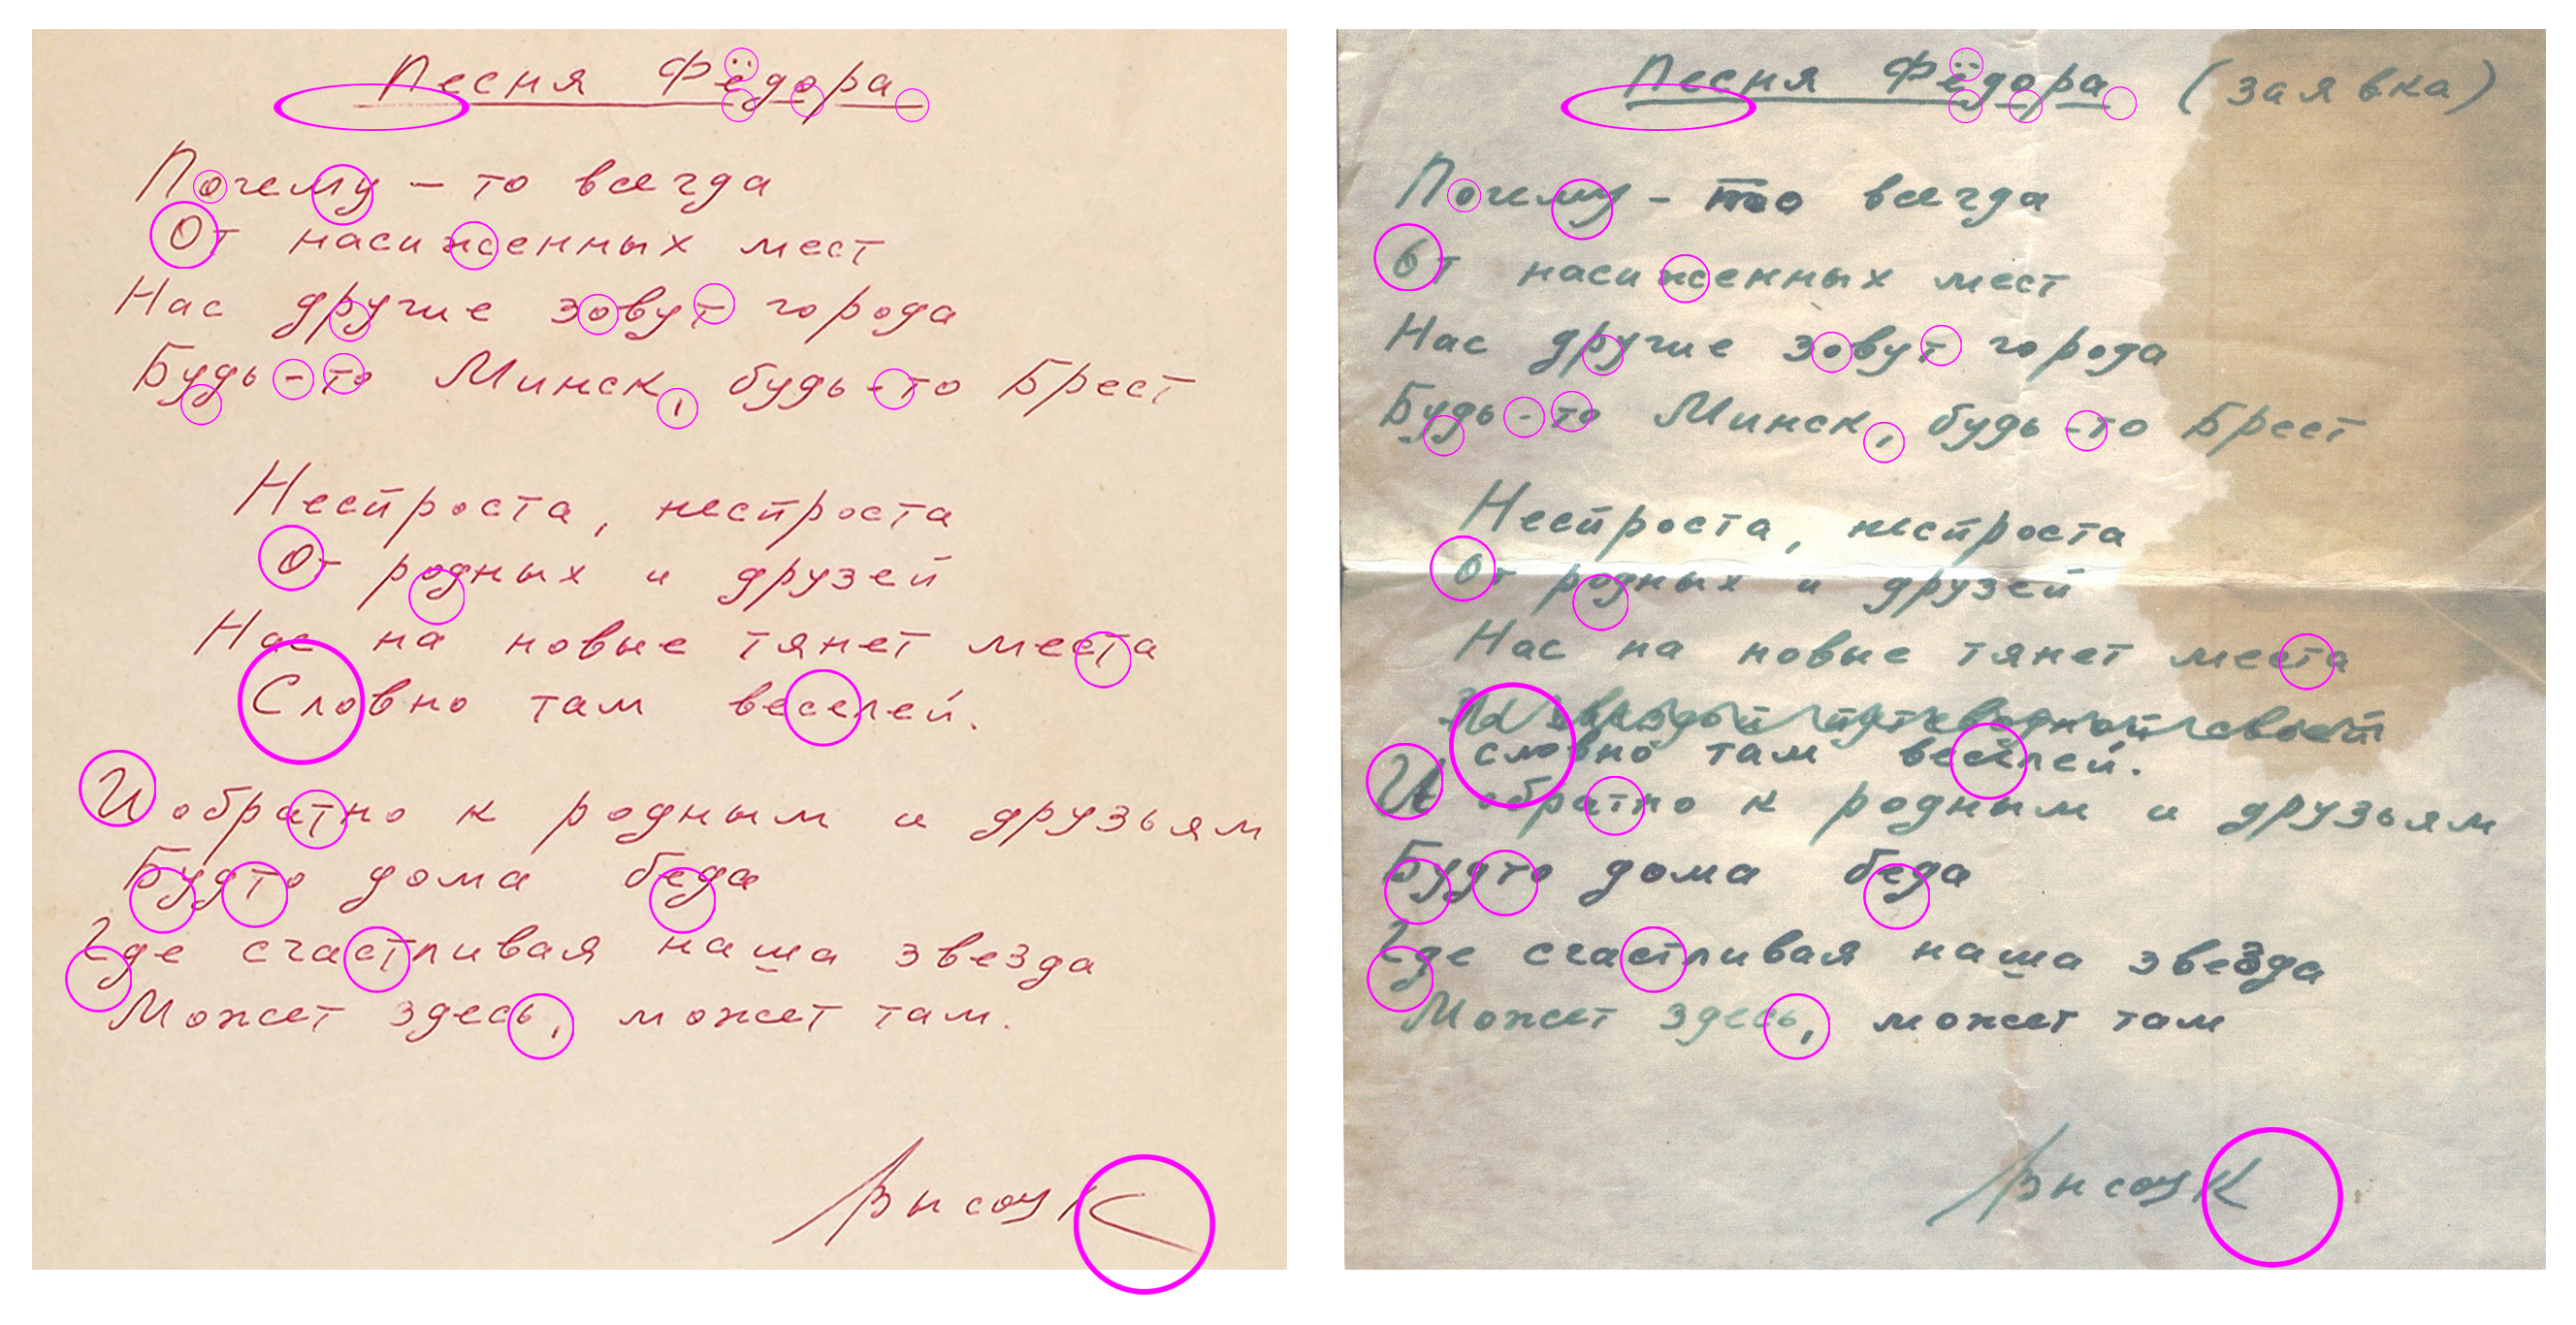 Песня Фёдора
Почему-то всегда
От насиженных мест
Нас другие зовут города
Будь-то Минск, будь-то Брест
Неспроста, неспроста
От родных и друзей
Нас на новые тянет места
Словно там веселей.
И обратно к родным и друзьям
Будто дома беда
Где счастливая наша звезда
Может здесь, может там.
Высоц
Песня Фёдора (заявка)
Почему-то всегда
От насиженных мест
Нас другие зовут города
Будь-то Минск, будь-то Брест
Неспроста, неспроста
От родных и друзей
Нас на новые тянет места
словно там веселей.
И обратно к родным и друзьям
Будто дома беда
Где счастливая наша звезда
Может здесь, может там